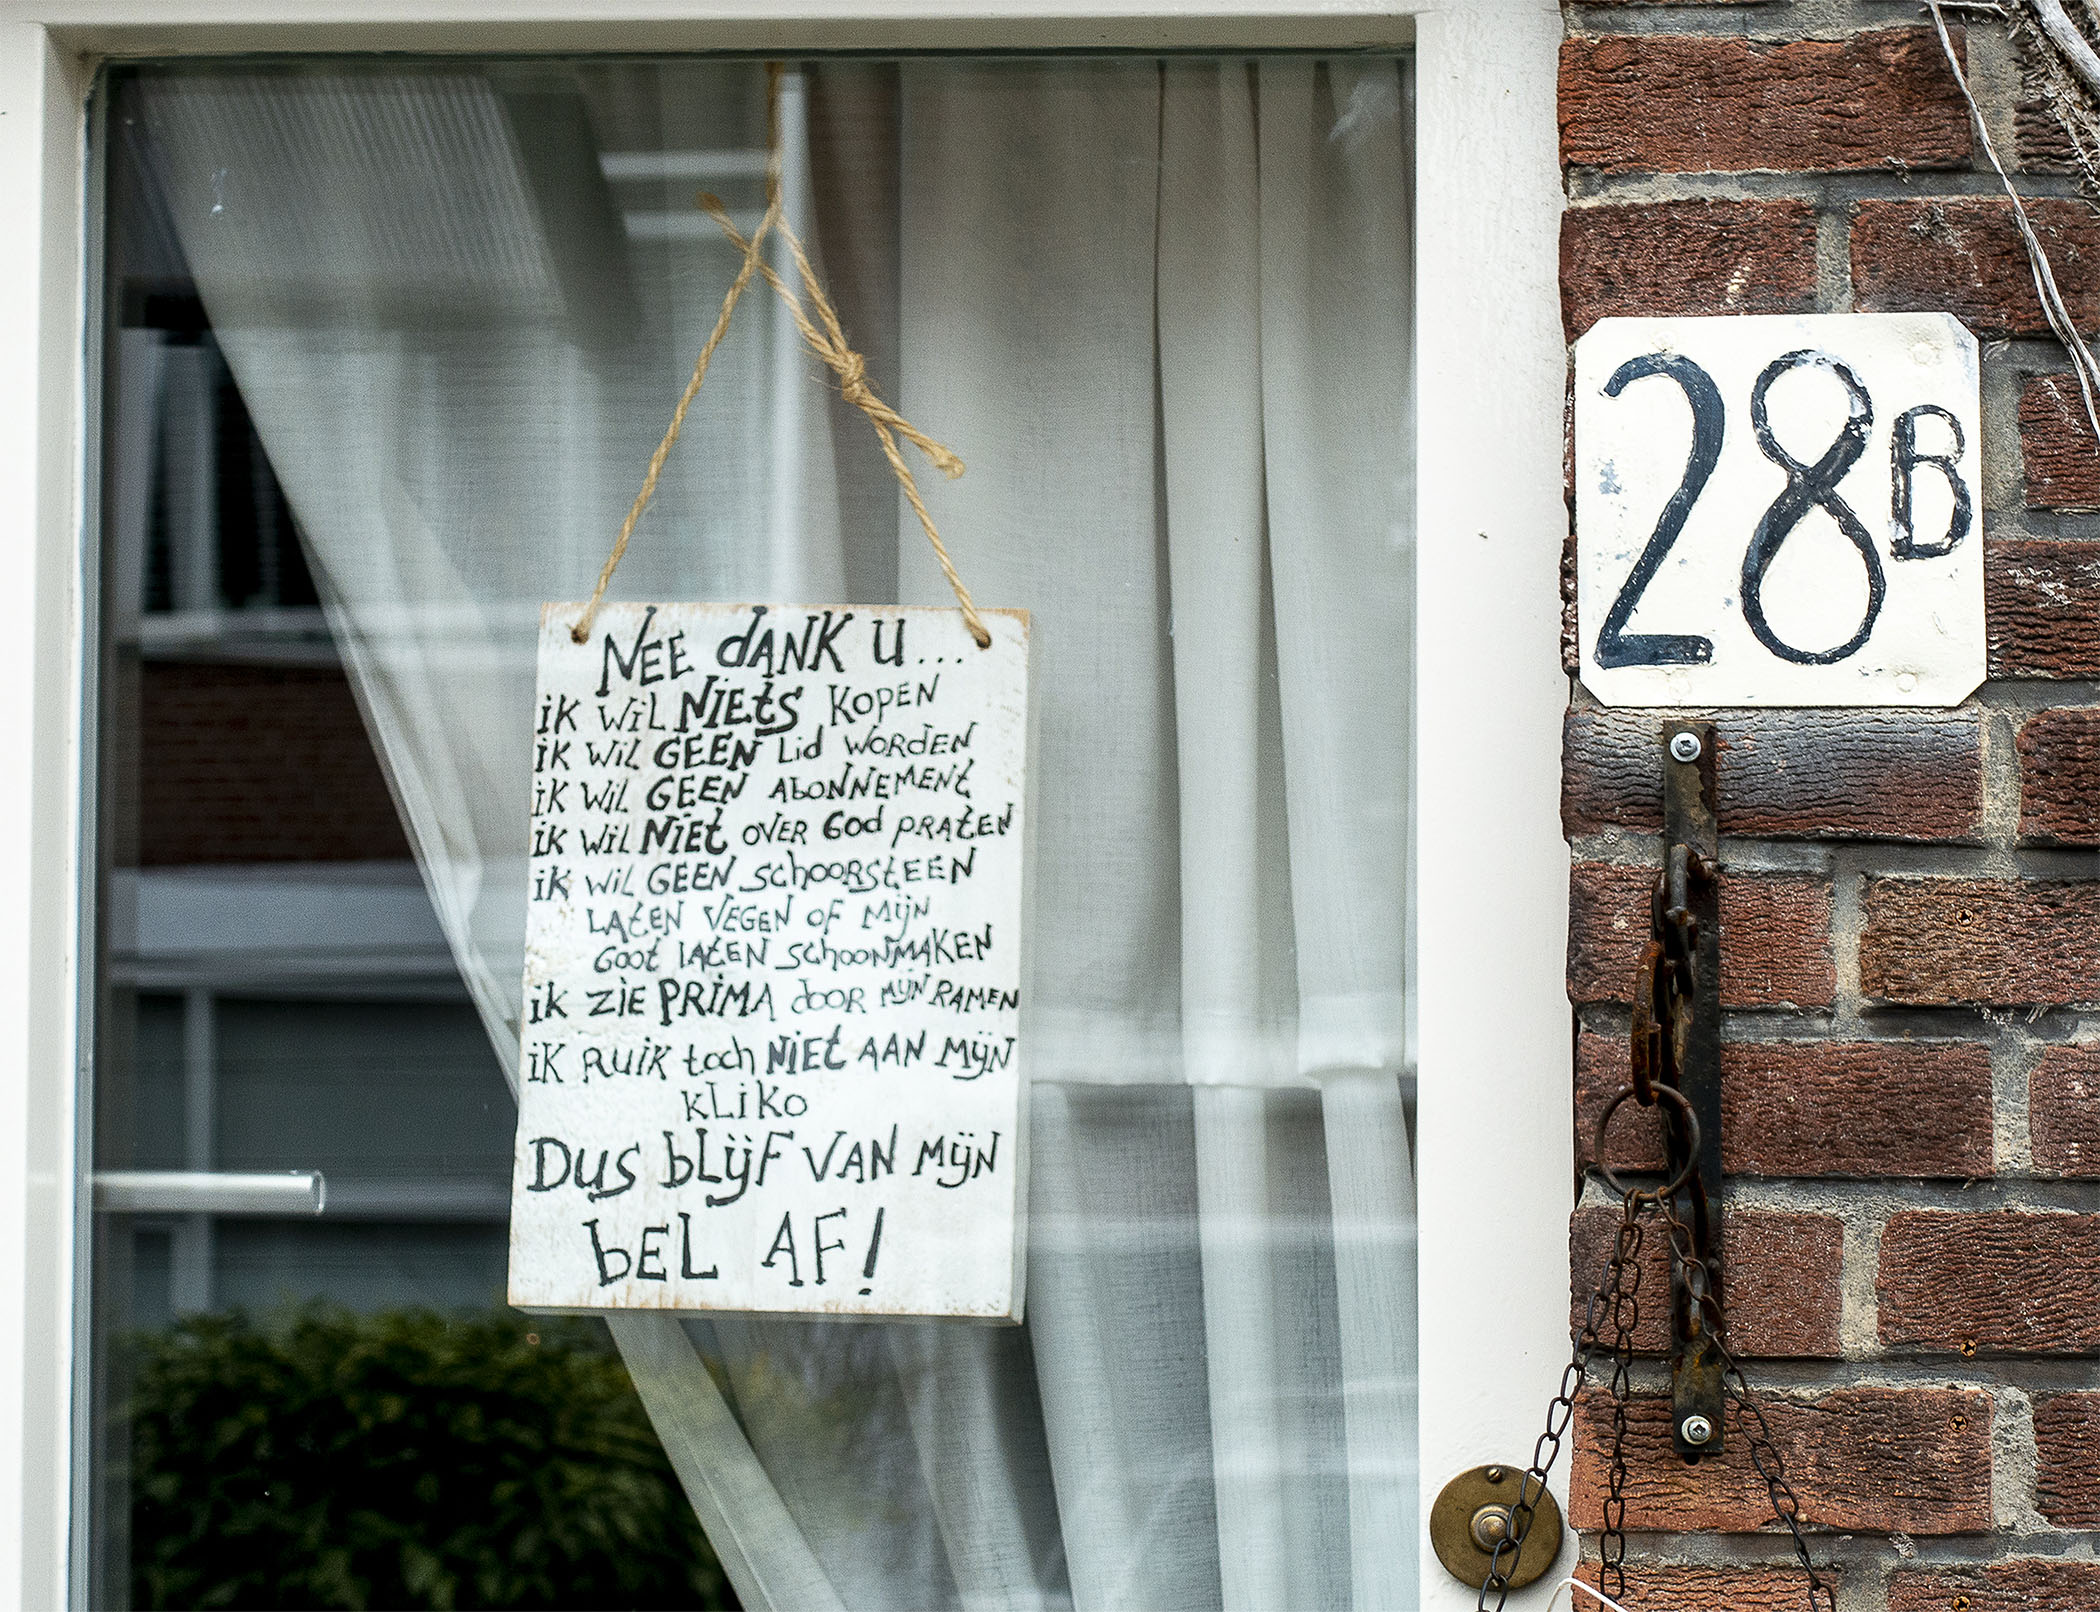 NEE dANK U...
iK WiL NIEtS KOPEN
iK WIL GEEN Lid WORdEN
iK WiL GEEN AbONNEMENt
iK WiL NIEt OVER God PRAtEN
iK WiL GEEN SchOORStEEN
LAtEN VEGEN OF MijN
Goot lAtEN SchOONMAKEN
iK ZIE PRiMA dooR MijN RAMEN
iK RUiK toch NIEt AAN MijN
KLiKo
DUS bLijF VAN MijN
bEL AF!
28B